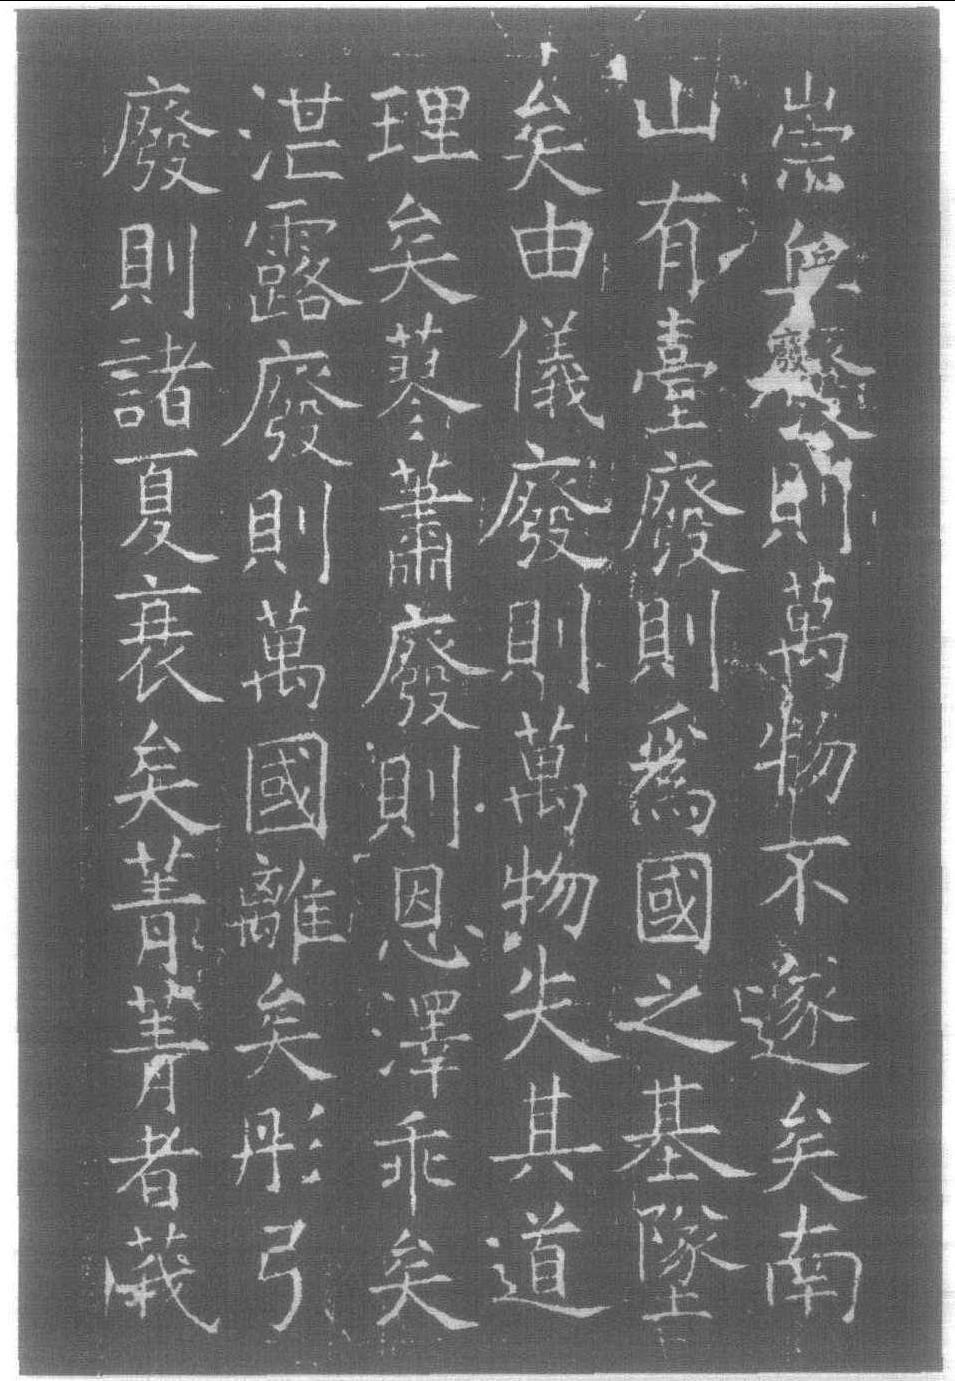 崇丘廢則萬物不遂矣南
山有臺廢則爲國之基墜
矣由儀廢則萬物失其道
理矣蓼蕭廢則恩澤乖矣
湛露廢則萬國離矣彤弓
廢則諸夏衰矣菁菁者莪